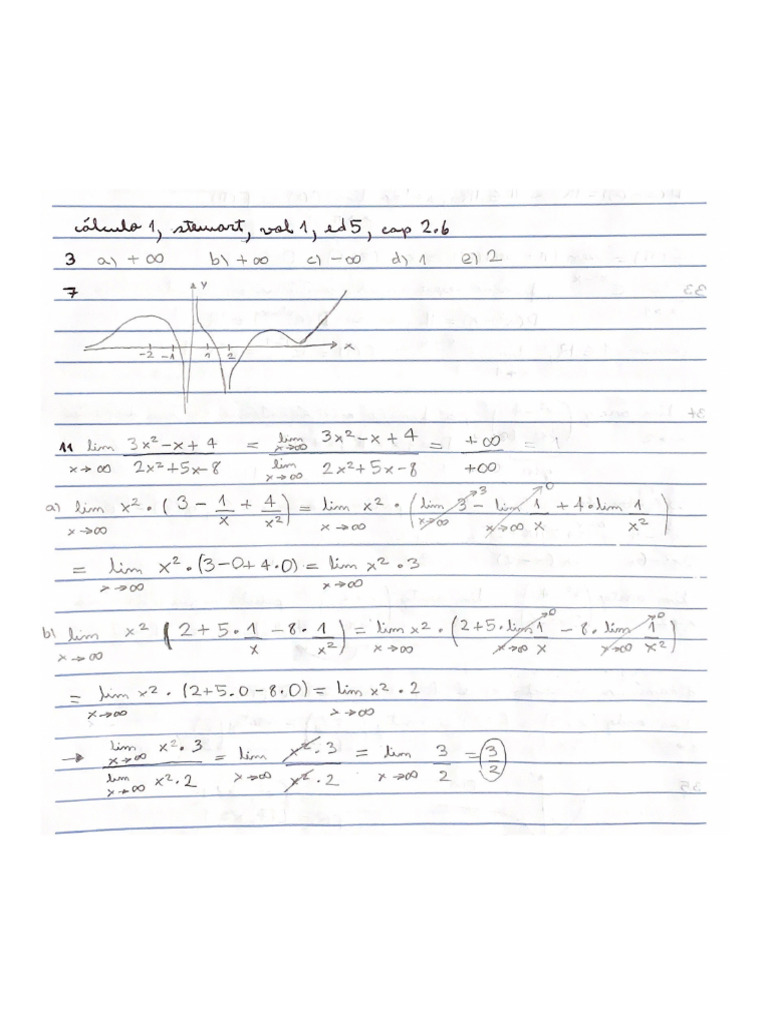 cálculo 1, stewart, vol 1, ed 5, cap 2.6
3 a) +∞ b) +∞ c) -∞ d) 1 e) 2
7
y
-2 -1 1 2 x
11 lim x→∞ (3x²-x+4)/(2x²+5x-8) = (lim x→∞ 3x²-x+4)/(lim x→∞ 2x²+5x-8) = +∞/+∞ =
a) lim x→∞ x²·(3 - 1/x + 4/x²) = lim x→∞ x²·(lim x→∞ 3 →3 - lim x→∞ 1/x →0 + 4·lim 1/x²)
= lim x→∞ x²·(3-0+4·0) = lim x→∞ x²·3
b) lim x→∞ x² (2+5·1/x - 8·1/x²) = lim x→∞ x²·(2+5·lim x→∞ 1/x →0 - 8·lim x→∞ 1/x² →0)
= lim x→∞ x²·(2+5·0-8·0) = lim x→∞ x²·2
→ (lim x→∞ x²·3)/(lim x→∞ x²·2) = lim x→∞ (x²·3)/(x²·2) = lim x→∞ 3/2 = 3/2